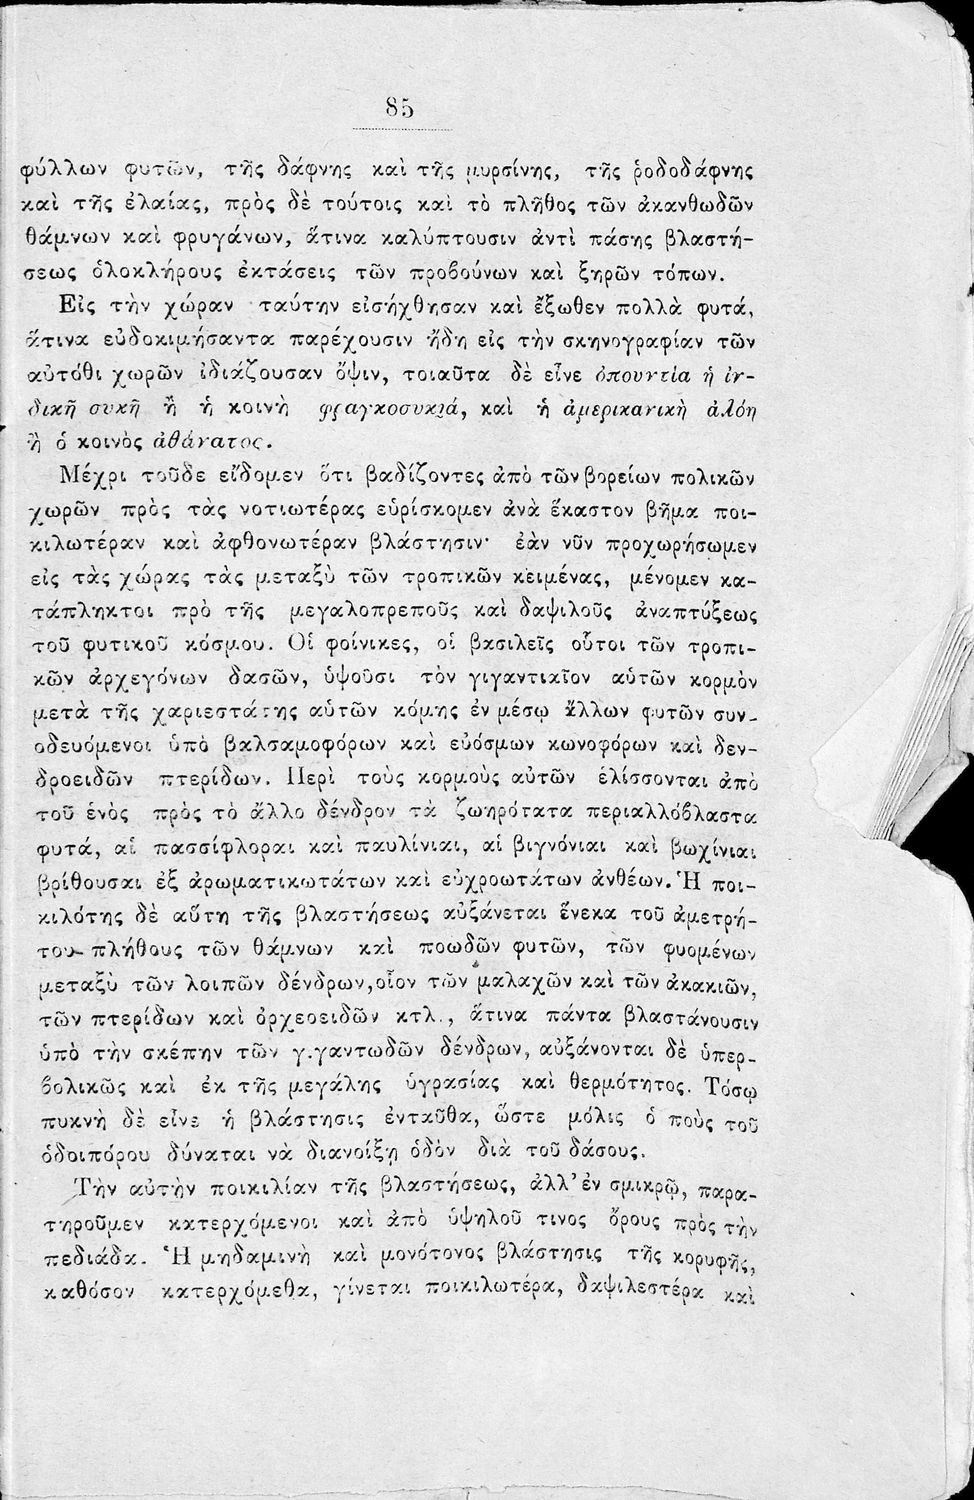 85
φύλλων φυτῶν, τῆς δάφνης καὶ τῆς μυρσίνης, τῆς ῥοδοδάφνης
καὶ τῆς ἐλαίας, πρὸς δὲ τούτοις καὶ τὸ πλῆθος τῶν ἀκανθωδῶν
θάμνων καὶ φρυγάνων, ἅτινα καλύπτουσιν ἀντὶ πάσης βλαστή-
σεως ὁλοκλήρους ἐκτάσεις τῶν προβούνων καὶ ξηρῶν τόπων.
Εἰς τὴν χώραν ταύτην εἰσήχθησαν καὶ ἔξωθεν πολλὰ φυτά,
ἅτινα εὐδοκιμήσαντα παρέχουσιν ἤδη εἰς τὴν σκηνογραφίαν τῶν
αὐτόθι χωρῶν ἰδιάζουσαν ὄψιν, τοιαῦτα δὲ εἶνε ὀπουντία ἡ ἰν-
δικῆ συκῆ ἢ ἡ κοινὴ φραγκοσυκιά, καὶ ἡ ἀμερικανικὴ ἀλόη
ἢ ὁ κοινὸς ἀθάνατος.
Μέχρι τοῦδε εἴδομεν ὅτι βαδίζοντες ἀπὸ τῶν βορείων πολικῶν
χωρῶν πρὸς τὰς νοτιωτέρας εὑρίσκομεν ἀνὰ ἕκαστον βῆμα ποι-
κιλωτέραν καὶ ἀφθονωτέραν βλάστησιν· ἐὰν νῦν προχωρήσωμεν
εἰς τὰς χώρας τὰς μεταξὺ τῶν τροπικῶν κειμένας, μένομεν κα-
τάπληκτοι πρὸ τῆς μεγαλοπρεποῦς καὶ δαψιλοῦς ἀναπτύξεως
τοῦ φυτικοῦ κόσμου. Οἱ φοίνικες, οἱ βασιλεῖς οὗτοι τῶν τροπι-
κῶν ἀρχεγόνων δασῶν, ὑψοῦσι τὸν γιγαντιαῖον αὑτῶν κορμὸν
μετὰ τῆς χαριεστάτης αὑτῶν κόμης ἐν μέσῳ ἄλλων φυτῶν συν-
οδευόμενοι ὑπὸ βαλσαμοφόρων καὶ εὐόσμων κωνοφόρων καὶ δεν-
δροειδῶν πτερίδων. Περὶ τοὺς κορμοὺς αὐτῶν ἑλίσσονται ἀπὸ
τοῦ ἑνὸς πρὸς τὸ ἄλλο δένδρον τὰ ζωηρότατα περιαλλόβλαστα
φυτά, αἱ πασσίφλοραι καὶ παυλίνιαι, αἱ βιγνόνιαι καὶ βωχίνιαι
βρίθουσαι ἐξ ἀρωματικωτάτων καὶ εὐχροωτάτων ἀνθέων. Ἡ ποι-
κιλότης δὲ αὕτη τῆς βλαστήσεως αὐξάνεται ἕνεκα τοῦ ἀμετρή-
του πλήθους τῶν θάμνων καὶ ποωδῶν φυτῶν, τῶν φυομένων
μεταξὺ τῶν λοιπῶν δένδρων, οἷον τῶν μαλαχῶν καὶ τῶν ἀκακιῶν,
τῶν πτερίδων καὶ ὀρχεοειδῶν κτλ., ἅτινα πάντα βλαστάνουσιν
ὑπὸ τὴν σκέπην τῶν γιγαντωδῶν δένδρων, αὐξάνονται δὲ ὑπερ-
βολικῶς καὶ ἐκ τῆς μεγάλης ὑγρασίας καὶ θερμότητος. Τόσῳ
πυκνὴ δὲ εἶνε ἡ βλάστησις ἐνταῦθα, ὥστε μόλις ὁ ποὺς τοῦ
ὁδοιπόρου δύναται νὰ διανοίξῃ ὁδὸν διὰ τοῦ δάσους.
Τὴν αὐτὴν ποικιλίαν τῆς βλαστήσεως, ἀλλ' ἐν σμικρῷ, παρα-
τηροῦμεν κατερχόμενοι καὶ ἀπὸ ὑψηλοῦ τινος ὄρους πρὸς τὴν
πεδιάδα. Ἡ μηδαμινὴ καὶ μονότονος βλάστησις τῆς κορυφῆς,
καθόσον κατερχόμεθα, γίνεται ποικιλωτέρα, δαψιλεστέρα καὶ